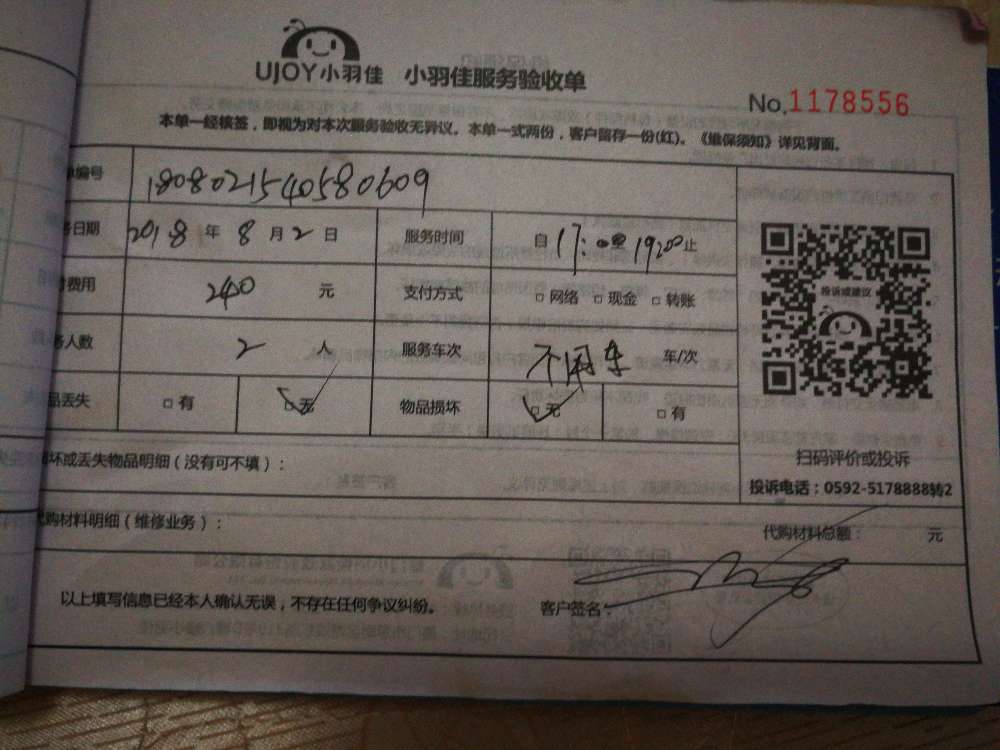 UJOY小羽佳 小羽佳服务验收单
No.1178556
本单一经核签，即视为对本次服务验收无异议。本单一式两份，客户留存一份(红)。《维保须知》详见背面。
编号 1808021540580609
日期 2018 年 8 月 2 日 服务时间 自 17: 至 19:00 止
费用 240 元 支付方式 □ 网络 □ 现金 □ 转账
人数 2 人 服务车次 不用车 车/次
品丢失 □ 有 □ 无 物品损坏 □ 无 □ 有
投诉或建议
扫码评价或投诉
投诉电话：0592-5178888转2
坏或丢失物品明细（没有可不填）：
代购材料明细（维修业务）： 代购材料总额： 元
以上填写信息已经本人确认无误，不存在任何争议纠纷。 客户签名：